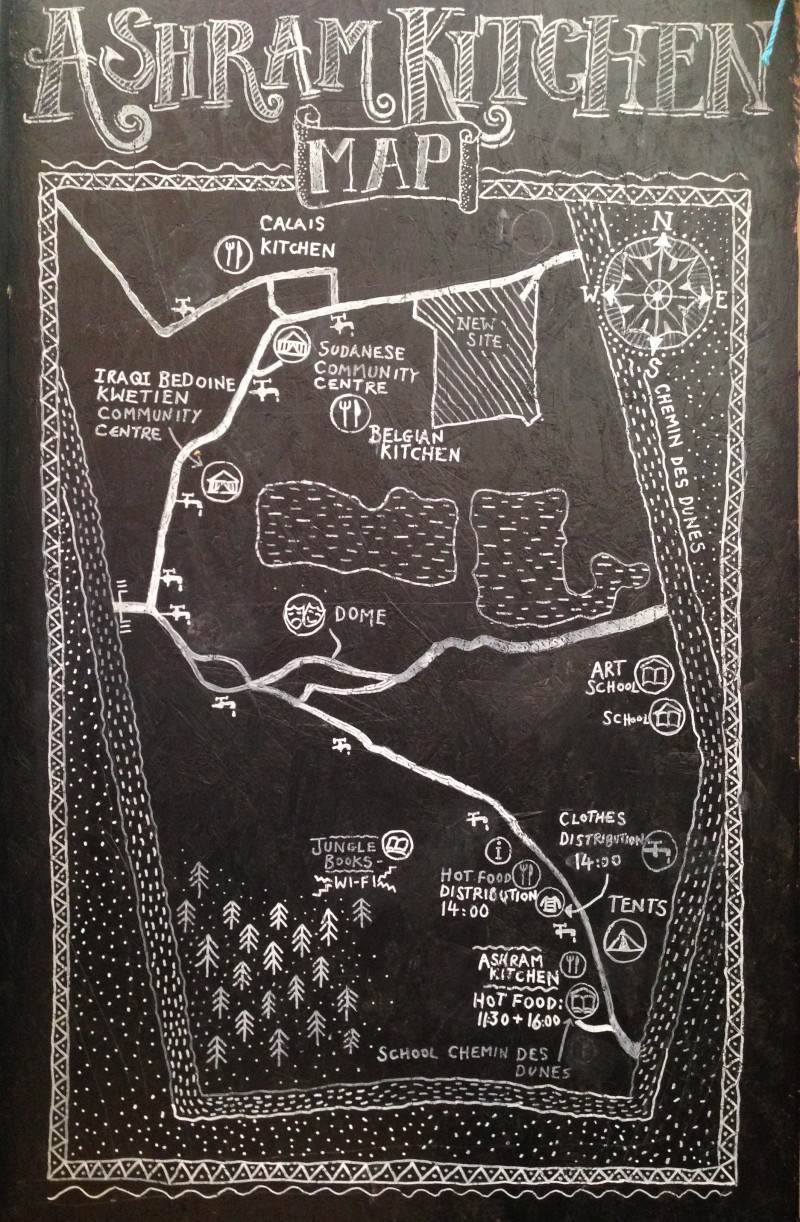 ASHRAM KITCHEN
MAP
CALAIS
KITCHEN
N
W
E
S
NEW
SITE
SUDANESE
COMMUNITY
CENTRE
IRAQI BEDOINE
KWETIEN
COMMUNITY
CENTRE
BELGIAN
KITCHEN
CHEMIN DES DUNES
DOME
ART
SCHOOL
SCHOOL
CLOTHES
DISTRIBUTION
14:00
JUNGLE
BOOKS
WI-FI
i
HOT FOOD
DISTRIBUTION
14:00
TENTS
ASHRAM
KITCHEN
HOT FOOD:
11:30 + 16:00
SCHOOL CHEMIN DES
DUNES